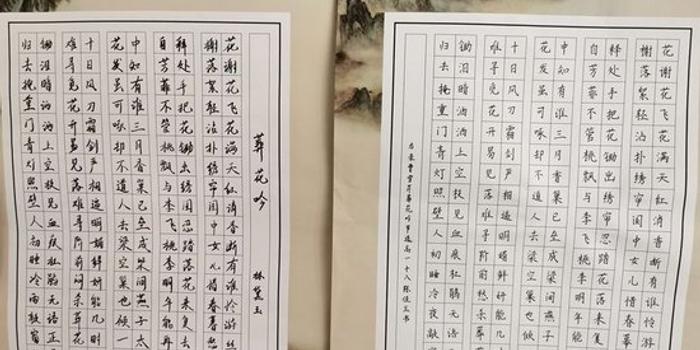 葬花吟
林黛玉
花谢花飞花满天红消香断有谁怜游丝
榭落絮轻沾扑绣帘闺中女儿惜春暮愁
释处手把花锄出绣闺忍踏落花来复去
自芳菲不管桃飘与李飞桃李明年能再
中知有谁三月香巢已垒成梁间燕子太
花发虽可啄却不道人去梁空巢也倾一
十日风刀霜剑严相逼明媚鲜妍能几时
难寻觅花开易见落难寻阶前闷杀葬花
锄泪暗洒洒上空枝见血痕杜鹃无语正
归去掩重门青灯照壁人初睡冷雨敲窗
花谢花飞花满天红消香断有谁怜游
榭落絮轻沾扑绣帘闺中女儿惜春暮
释处手把花锄出绣闺忍踏落花来复
自芳菲不管桃飘与李飞桃李明年能
中知有谁三月香巢已垒成梁间燕子
花发虽可啄却不道人去梁空巢也倾
十日风刀霜剑严相逼明媚鲜妍能几
难寻觅花开易见落难寻阶前愁杀葬
锄泪暗洒洒上空枝见血痕杜鹃无语
归去掩重门青灯照壁人初睡冷夜敲